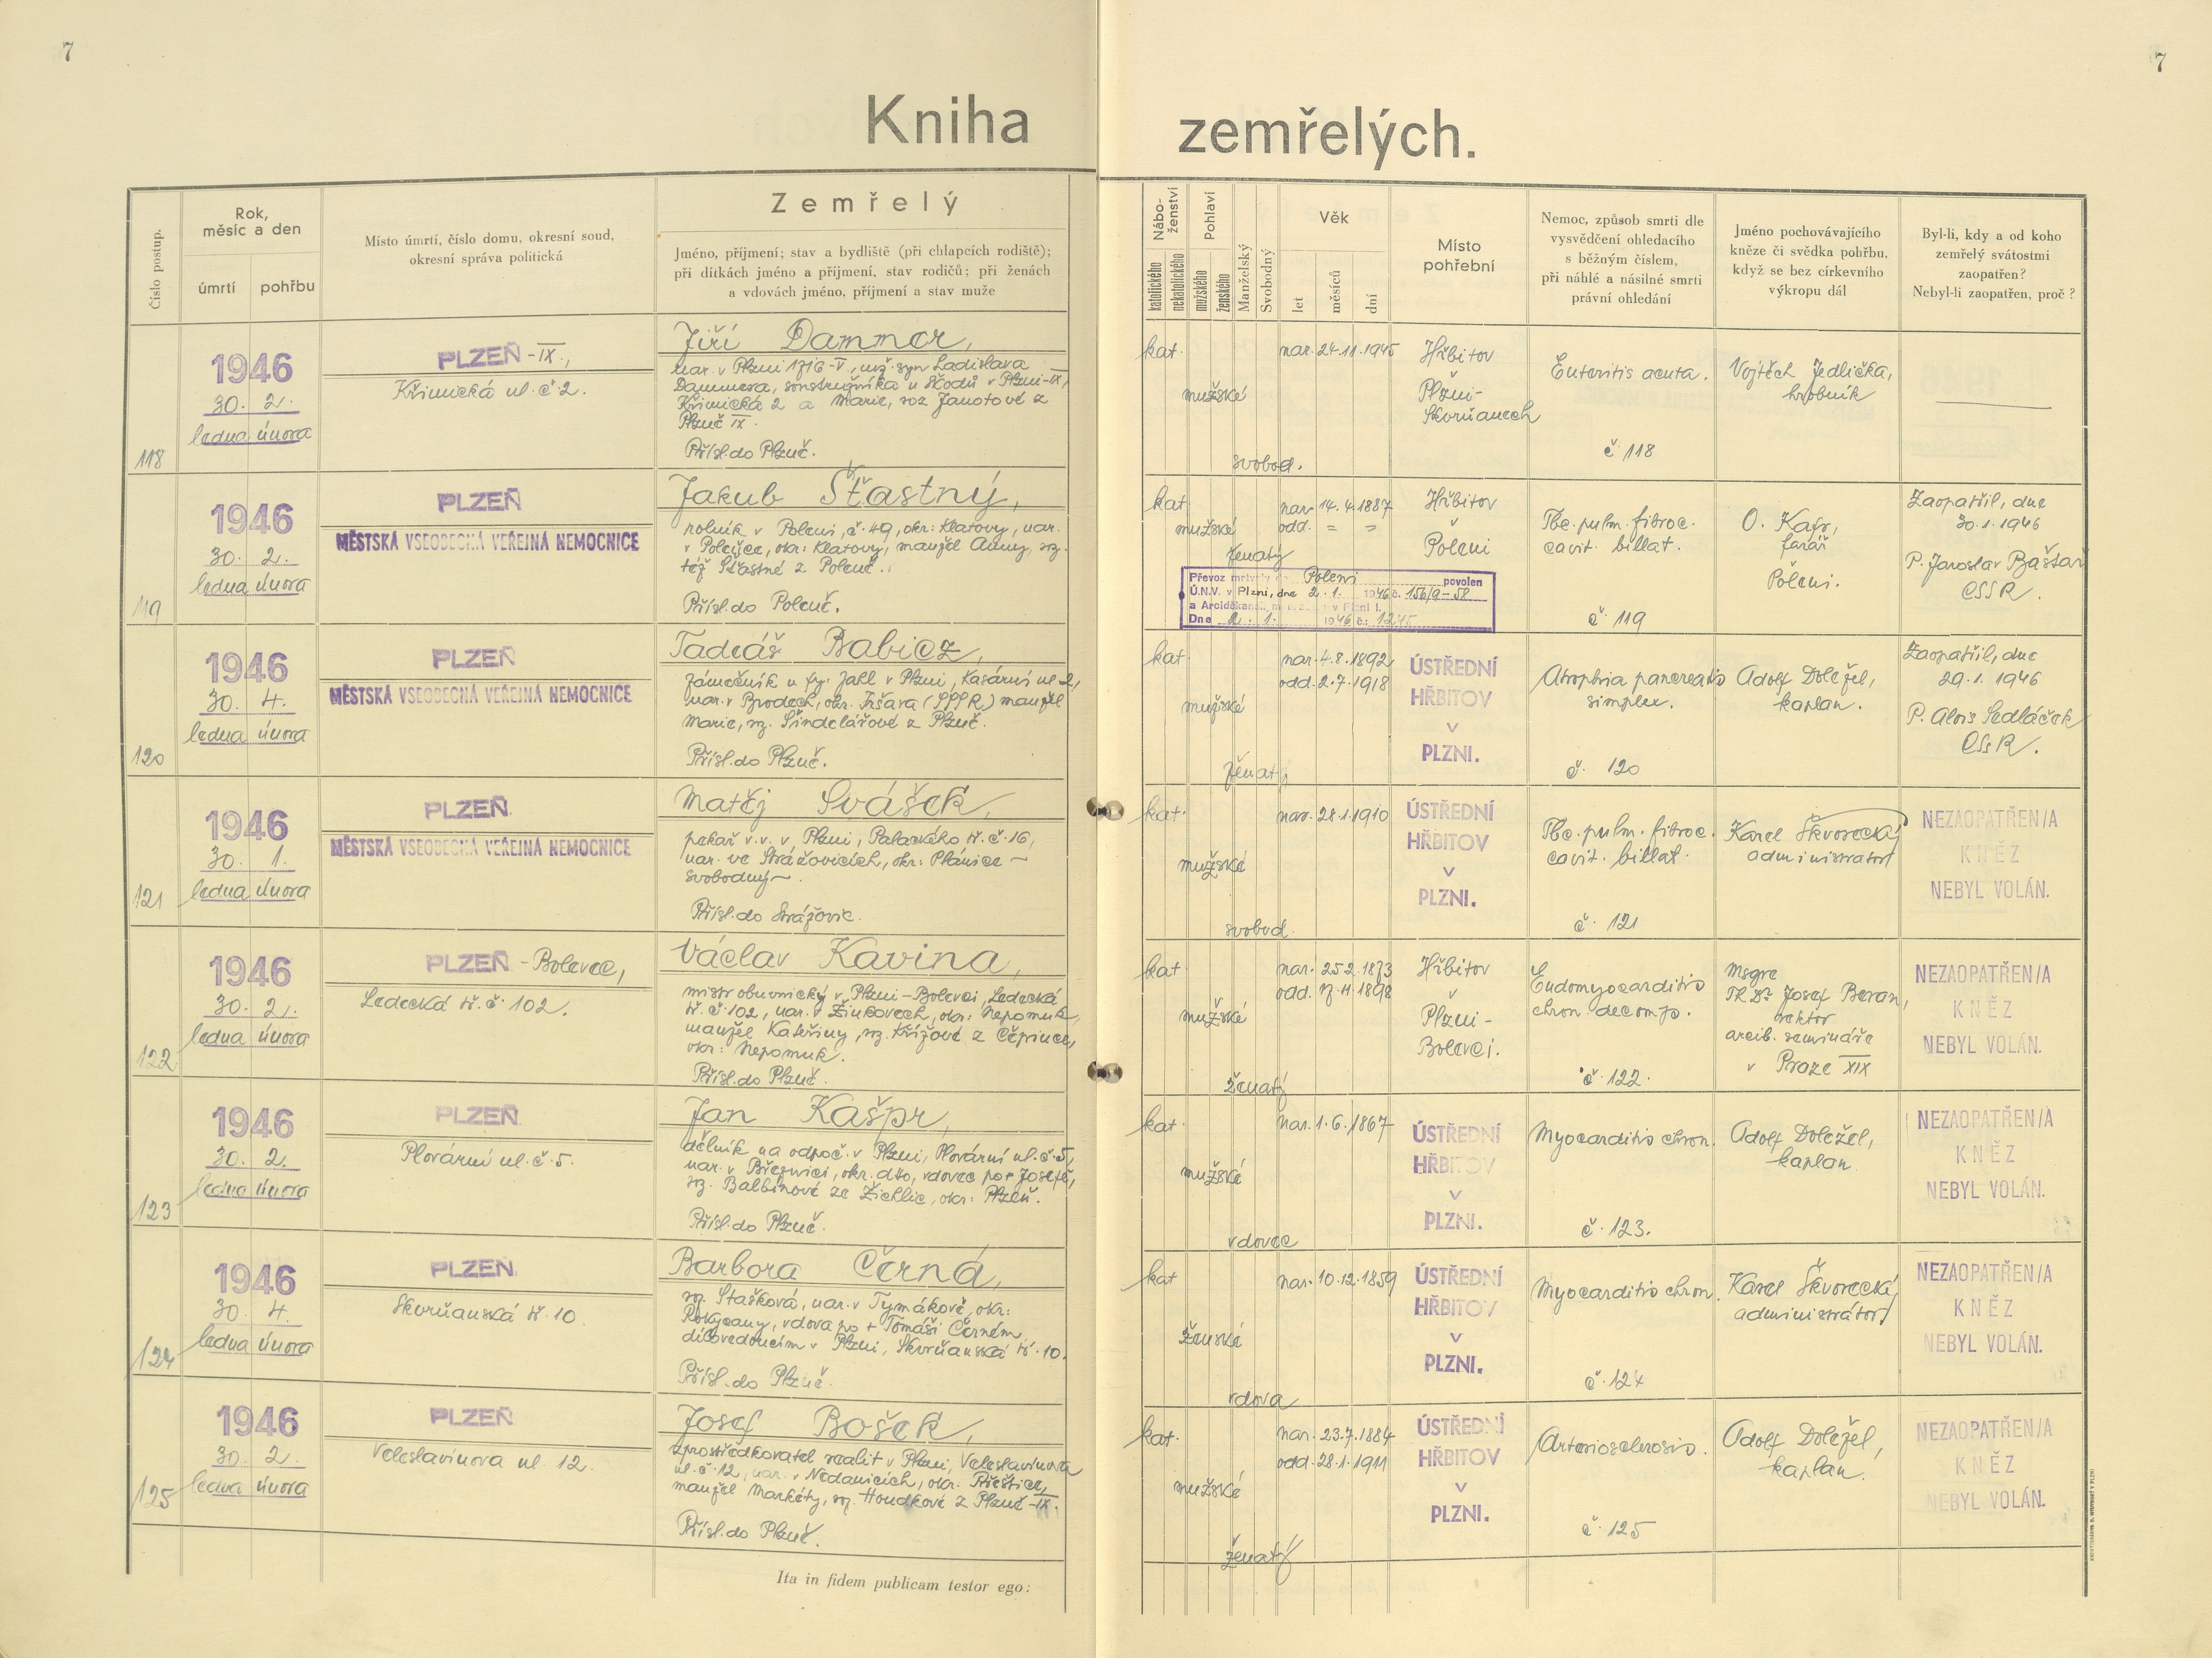 7
7
Kniha zemřelých.
Číslo postup.
Rok, měsíc a den
úmrtí
pohřbu
Místo úmrtí, číslo domu, okresní soud,
okresní správa politická
Zemřelý
Jméno, příjmení; stav a bydliště (při chlapcích rodiště);
při dítkách jméno a příjmení, stav rodičů; při ženách
a vdovách jméno, příjmení a stav muže
Nábo-
ženství
katolického
nekatolického
Pohlaví
mužského
ženského
Manželský
Svobodný
Věk
let
měsíců
dní
Místo
pohřební
Nemoc, způsob smrti dle
vysvědčení ohledacího
s běžným číslem,
při náhlé a násilné smrti
právní ohledání
Jméno pochovávajícího
kněze či svědka pohřbu,
když se bez církevního
výkropu dál
Byl-li, kdy a od koho
zemřelý svátostmi
zaopatřen?
Nebyl-li zaopatřen, proč?
118
1946
30. 2.
ledna února
PLZEŇ -IX.,
Křimická ul. č 2.
Jiří Dammer,
nar. v Plzni 1716-V., syn Ladislava
Dammera, u Škodů v Plzni-IX,
Křimická 2 a Marie, roz Janotové z
Plzně IX.
Přísl. do Plzně.
kat.
mužské
svobod.
nar. 24.11.1945
Hřbitov
v
Plzni-
Skvrňanech
Enteritis acuta.
č 118
Vojtěch Jedlička,
hrobník
119
1946
30. 2.
ledna února
PLZEŇ
MĚSTSKÁ VŠEOBECNÁ VEŘEJNÁ NEMOCNICE
Jakub Šťastný,
rolník v Poleni, č. 49, okr: Klatovy, nar.
v Poleňce, okr: Klatovy, manžel Anny, roz.
též Šťastné z Poleně.
Přísl. do Poleně.
kat
mužské
ženatý
nar 14.4.1887
odd. = =
Hřbitov
v
Poleni
Převoz mrtvoly do Poleni povolen
Ú.N.V. v Plzni, dne 2. 1. 1946 č. 156/9-58
a Arciděkanský v Plzni I.
Dne 2. 1. 1946 č.: 1245
Tbc. pulm. fibroc.
cavit. billat.
č. 119
O. Kafr,
farář
Poleni.
Zaopatřil, dne
30.1.1946
P. Jaroslav Baštář
CSSR.
120
1946
30. 4.
ledna února
PLZEŇ
MĚSTSKÁ VŠEOBECNÁ VEŘEJNÁ NEMOCNICE
Tadeáš Babicz,
zámečník u fy: Jahl v Plzni, Kasární ul 2,
nar. v Brodech, okr. Iršava (SSSR) manžel
Marie, roz. Šindelářové z Plzně.
Přísl. do Plzně.
kat.
mužské
ženatý
nar. 4.8.1892
odd. 2.7.1918
ÚSTŘEDNÍ
HŘBITOV
V
PLZNI.
Atrophia pancreatis
simplex.
č. 120
Adolf Doležel,
kaplan.
Zaopatřil, dne
29.1.1946
P. Alois Sedláček
CSSR.
121
1946
30. 1.
ledna února
PLZEŇ
MĚSTSKÁ VŠEOBECNÁ VEŘEJNÁ NEMOCNICE
Matěj Svášek,
pekař v.v. v Plzni, Palackého tř. č. 16,
nar. ve Strážovicích, okr: Plánice ~
svobodný ~
Přísl. do Strážovic.
kat.
mužské
svobod.
nar. 28.1.1910
ÚSTŘEDNÍ
HŘBITOV
V
PLZNI.
Tbc. pulm. fibroc.
cavit. billat.
č. 121
Karel Škvorecký
administrátor
NEZAOPATŘEN/A
KNĚZ
NEBYL VOLÁN.
122
1946
30. 2.
ledna února
PLZEŇ -Bolevec,
Ledecká tř. č. 102.
Václav Kavina,
mistr obuvnický v Plzni-Bolevci, Ledecká
tř. č. 102, nar. v Žinkovech, okr: Nepomuk,
manžel Kateřiny, roz. Křížové z Čepince,
okr: Nepomuk.
Přísl. do Plzně.
kat.
mužské
ženatý
nar. 25.2.1873
odd. 17.11.1898
Hřbitov
v
Plzni-
Bolevci.
Endomyocarditis
chron. decomp.
č. 122.
Msgre
ThDr Josef Beran,
rektor
arcib. semináře
v Praze XIX
NEZAOPATŘEN/A
KNĚZ
NEBYL VOLÁN.
123
1946
30. 2.
ledna února
PLZEŇ
Plovární ul. č. 5.
Jan Kašpr,
dělník na odpoč. v Plzni, Plovární ul. č. 5,
nar. v Březnici, okr. dto, vdovec po + Josefě,
roz. Balbínové ze Žichlic, okr: Plzeň.
Přísl. do Plzně.
kat.
mužské
vdovec
nar. 1.6.1867
ÚSTŘEDNÍ
HŘBITOV
V
PLZNI.
Myocarditis chron.
č. 123.
Adolf Doležel,
kaplan.
NEZAOPATŘEN/A
KNĚZ
NEBYL VOLÁN.
124
1946
30. 4.
ledna února
PLZEŇ
Skvrňanská tř. 10.
Barbora Černá,
roz. Stašková, nar. v Tymákově, okr:
Rokycany, vdova po + Tomáši Černém
dílovedoucím v Plzni, Skvrňanská tř. 10.
Přísl. do Plzně.
kat
ženské
vdova
nar. 10.12.1859
ÚSTŘEDNÍ
HŘBITOV
V
PLZNI.
Myocarditis chron.
č. 124
Karel Škvorecký,
administrátor
NEZAOPATŘEN/A
KNĚZ
NEBYL VOLÁN.
125
1946
30. 2.
ledna února
PLZEŇ
Veleslavínova ul. 12.
Josef Bošek,
zprostředkovatel realit v Plzni, Veleslavínova
ul. č. 12, nar. v Nedanicích, okr. Přeštice,
manžel Markéty, roz. Houdkové z Plzně-IX.
Přísl. do Plzně.
kat.
mužské
ženatý
nar. 23.7.1884
odd. 28.1.1911
ÚSTŘEDNÍ
HŘBITOV
V
PLZNI.
Arteriosclerosis.
č. 125
Adolf Doležel,
kaplan.
NEZAOPATŘEN/A
KNĚZ
NEBYL VOLÁN.
Ita in fidem publicam testor ego: